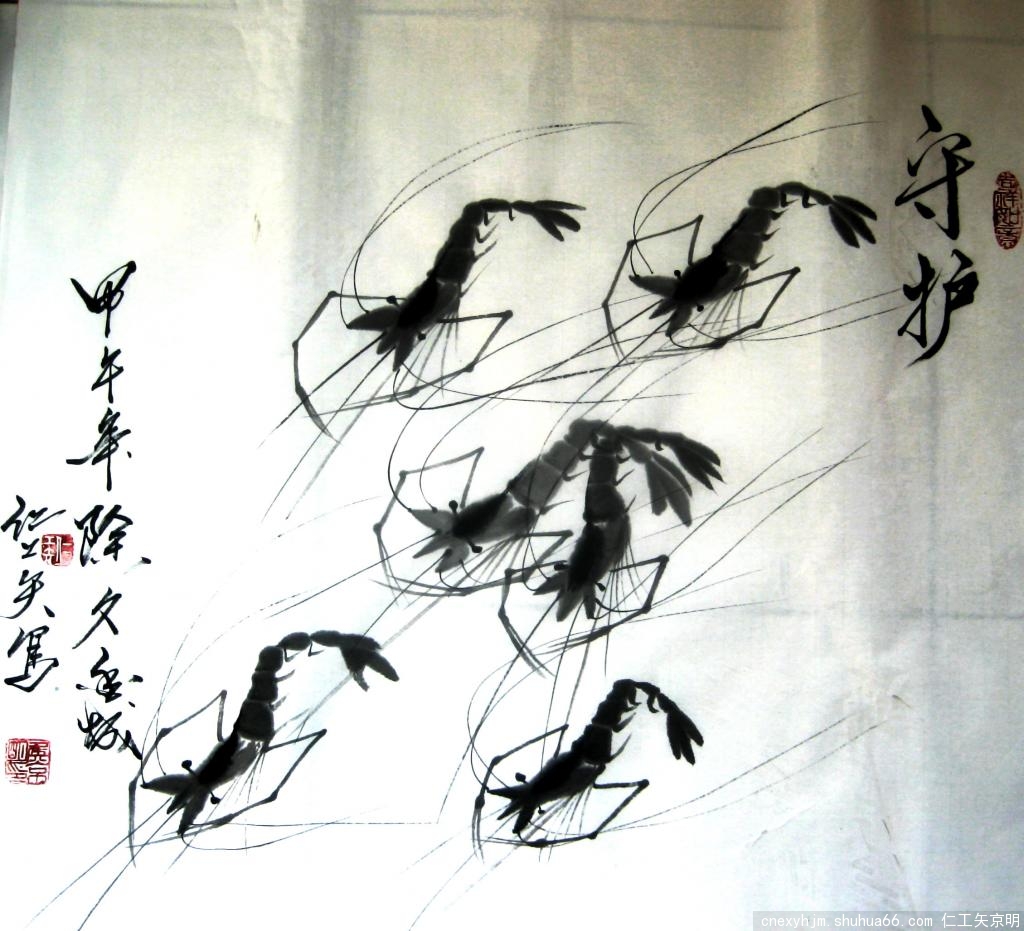 守护
吉祥如意
甲午年除夕
仁工矢写
cnexyhjm.shuhua66.com 仁工矢京明